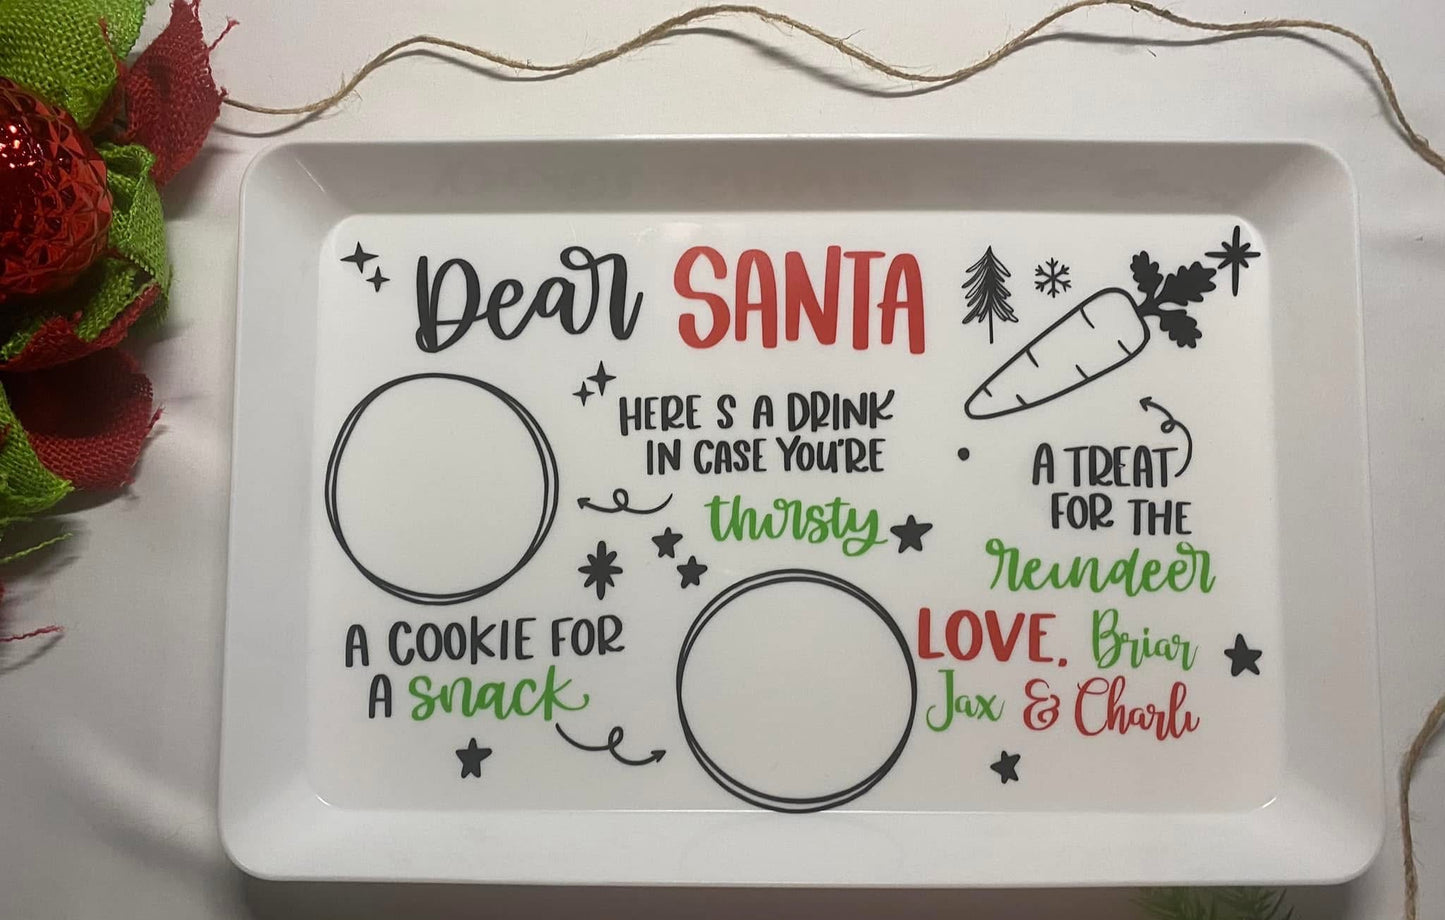 Dear SANTA
HERE S A DRINK
IN CASE YOU'RE
thirsty
A TREAT
FOR THE
reindeer
A COOKIE FOR
A snack
LOVE, Briar
Jax & Charli